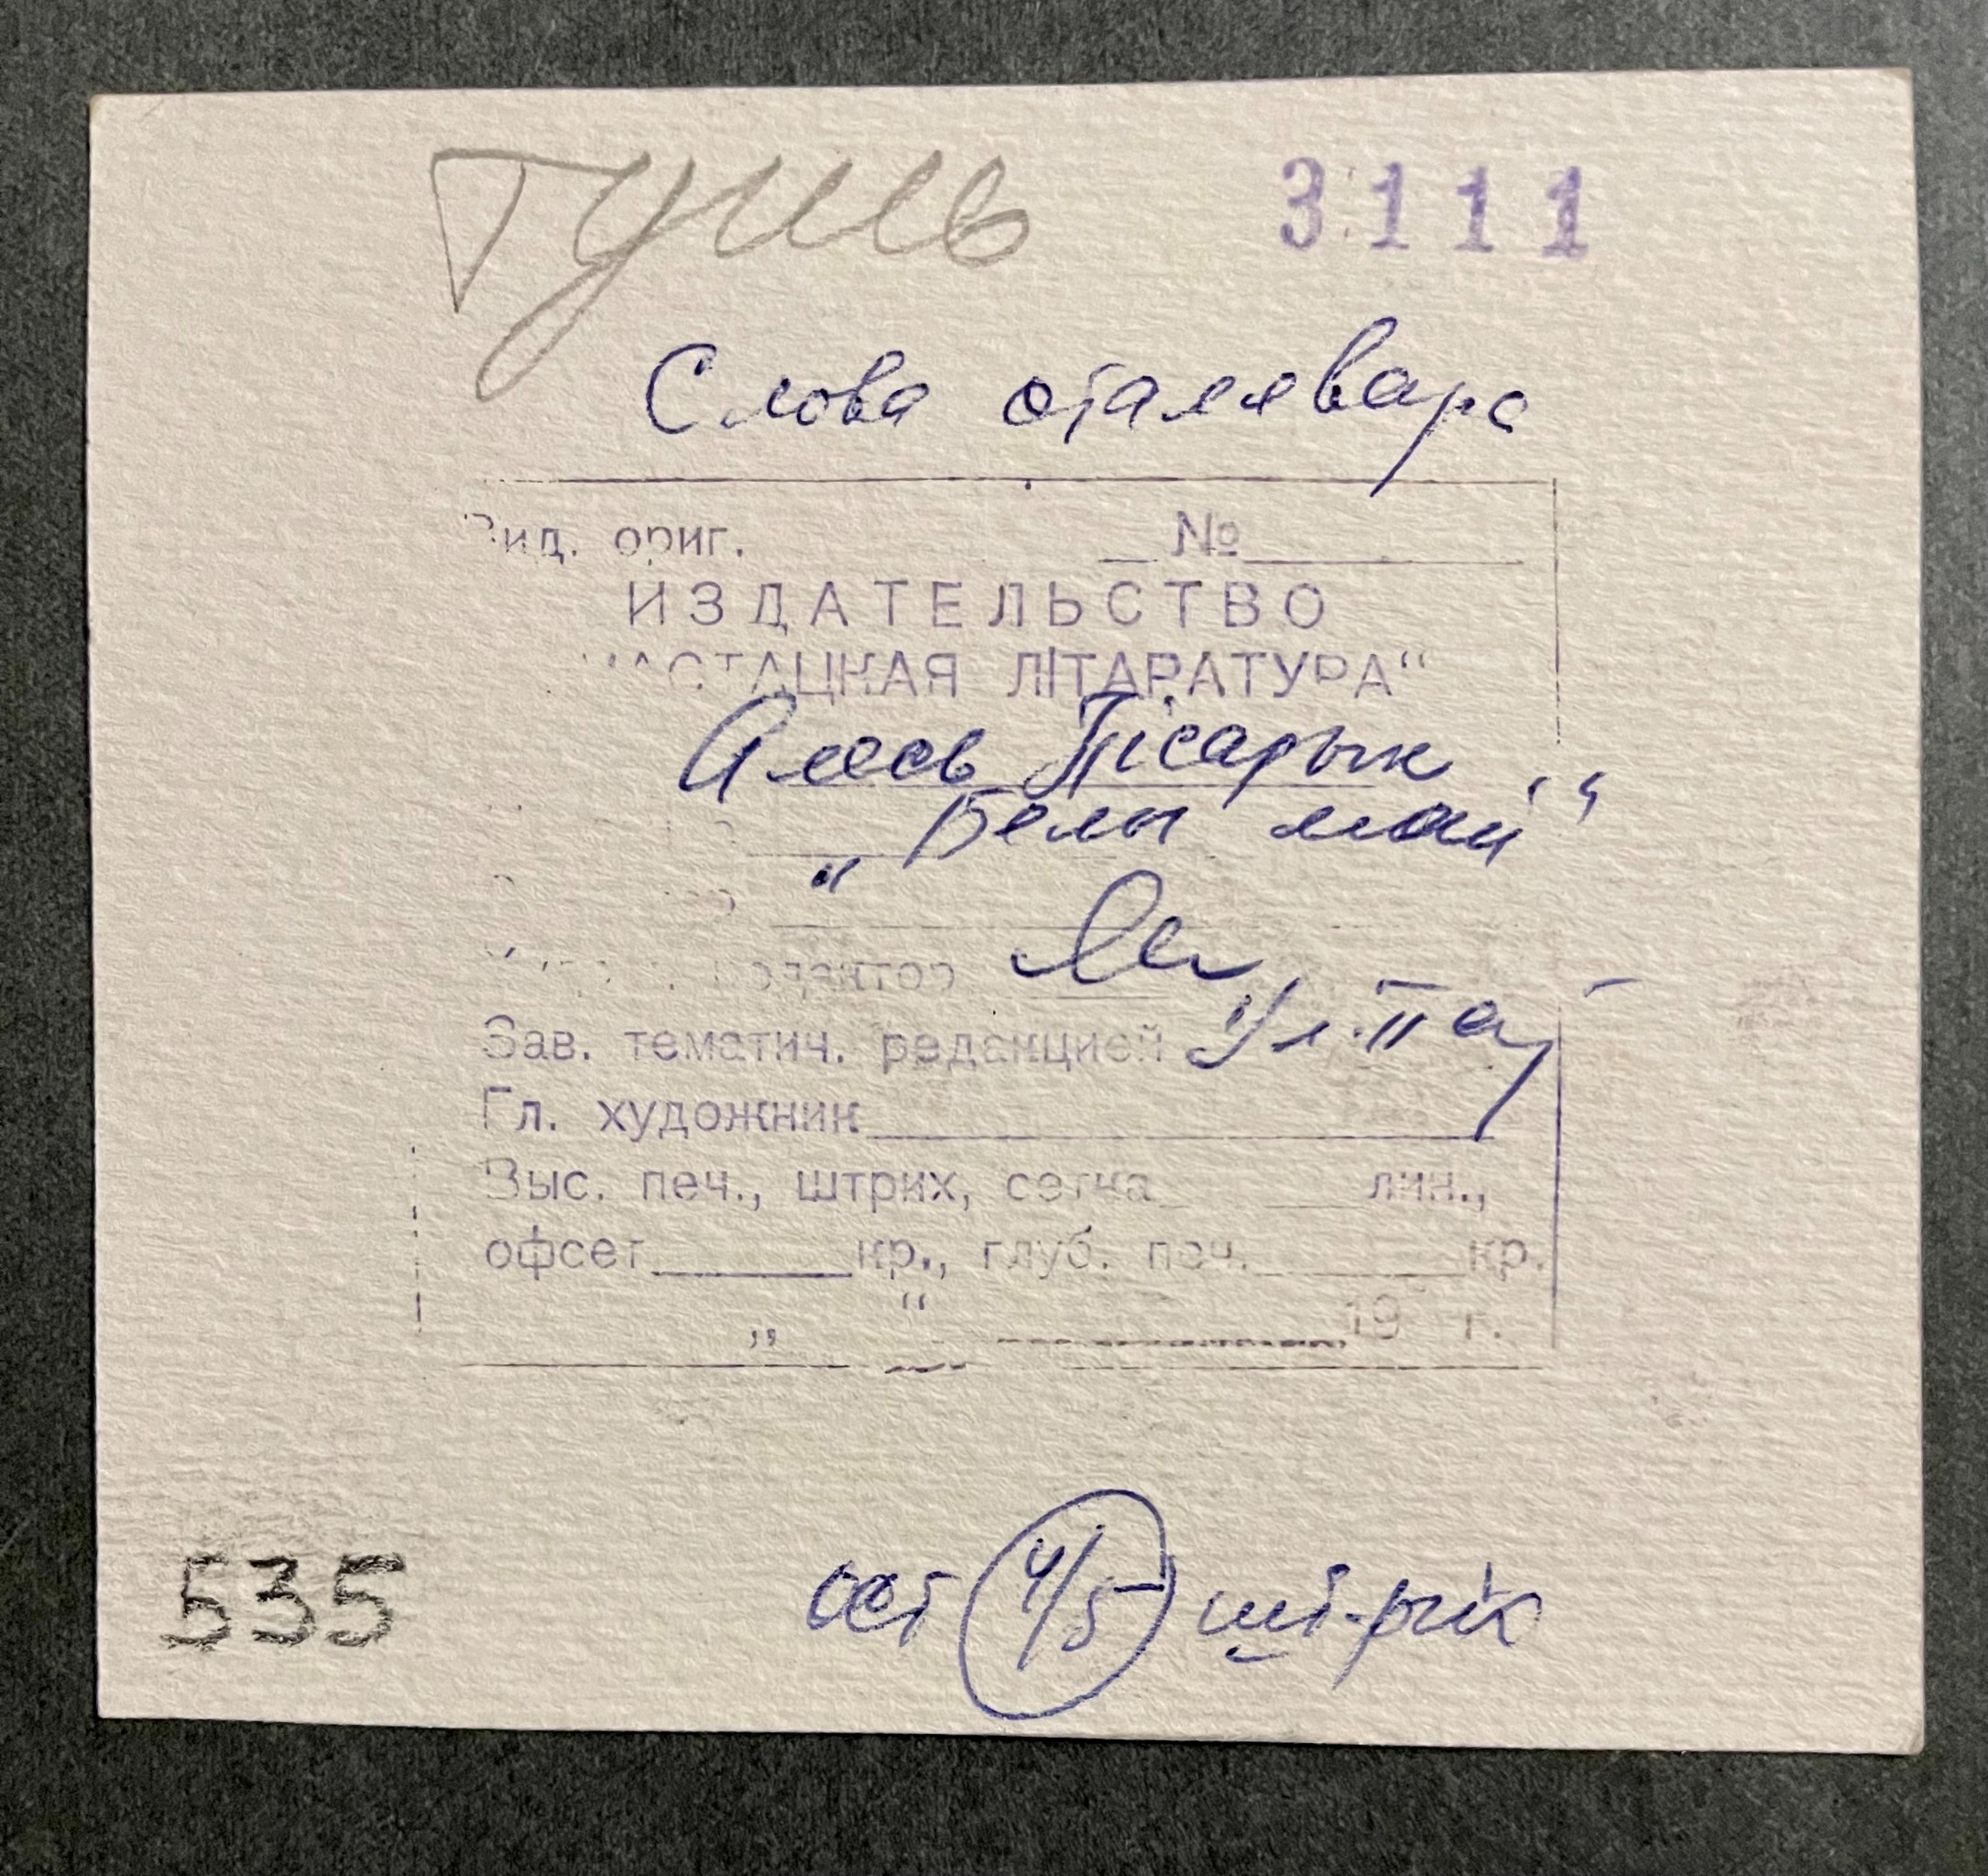 тушь 3111
Слова сталявара
Вид. ориг. №
ИЗДАТЕЛЬСТВО
"МАСТАЦКАЯ ЛІТАРАТУРА"
Алесь Пісарык
„Белы май"
редактор
Зав. тематич. редакцией
Гл. художник
Выс. печ., штрих, сетка лин.,
офсет кр., глуб. печ. кр.
„ “ 19 г.
535 4/5 штрых